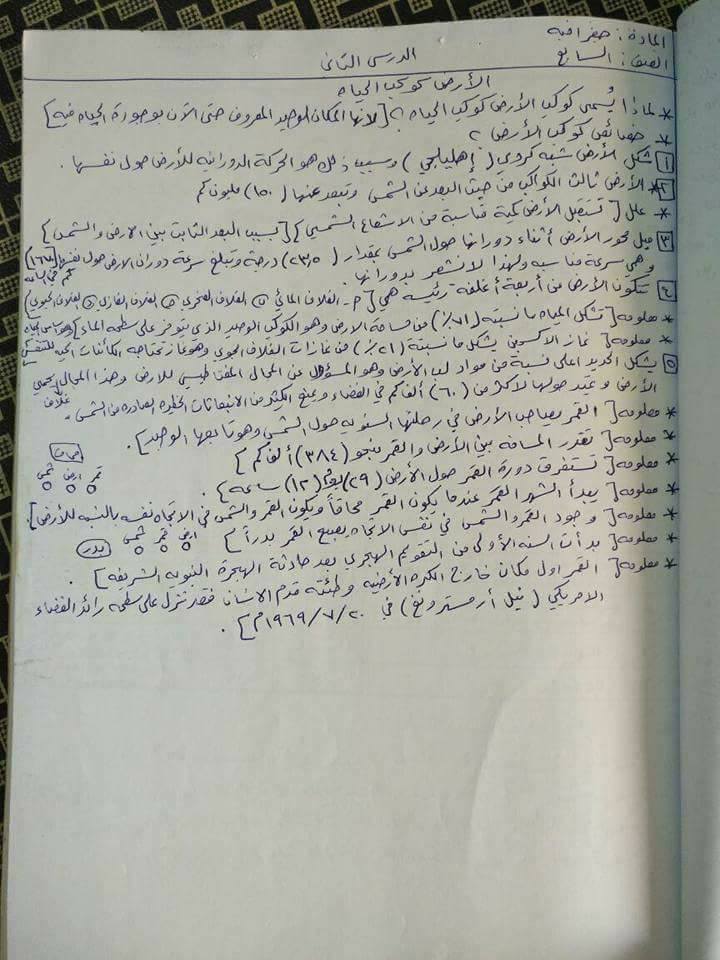 المادة: جغرافية
الصف: السابع
الدرس الثاني
الأرض كوكب الحياة
* لماذا يُسمى كوكب الأرض كوكب الحياة؟ [لأنها المكان الوحيد المعروف حتى الآن بوجود الحياة فيه]
* خصائص كوكب الأرض؟
1 شكل الأرض شبه كروي (إهليلجي) وسبب ذلك هو الحركة الدورانية للأرض حول نفسها.
2* الأرض ثالث الكواكب من حيث البعد عن الشمس وتبعد عنها (١٥٠) مليون كم
* علل [تستقبل الأرض كمية مناسبة من الاشعاع الشمسي] [بسبب البعد الثابت بين الأرض والشمس]
3 ميل محور الأرض أثناء دورانها حول الشمس بمقدار (٢٣,٥) درجة وتبلغ سرعة دوران الأرض حول نفسها (١٦٧٠) كم في الساعة
وهي سرعة مناسبة ولهذا لا نشعر بدورانها.
4 تتكون الأرض من أربعة أغلفة رئيسة هي [١- الغلاف المائي ٢ الغلاف الصخري ٣ الغلاف الغازي ٤ الغلاف الحيوي]
* معلومة [تشكل المياه ما نسبة (٧١٪) من مساحة الأرض وهو الكوكب الوحيد الذي يتوفر على سطحه الماء] وهو أساس الحياة
* معلومة [غاز الاكسجين يشكل ما نسبة (٢١٪) من غازات الغلاف الجوي وهو غاز تحتاجه الكائنات الحية للتنفس]
5 يشكل الحديد أعلى نسبة من مواد لب الأرض وهو المسؤول عن المجال المغناطيسي للأرض وهذا المجال يحمي غلاف
الأرض ويمتد حولها لأكثر من (٦٠) ألف كم في الفضاء ويمنع الكثير من الانبعاثات الخطرة الصادرة من الشمس.
* معلومة [القمر يصاحب الأرض في رحلتها السنوية حول الشمس وهو تابعها الوحيد].
* معلومة [تقدر المسافة بين الأرض والقمر بنحو (٣٨٤) ألف كم]
* معلومة [تستغرق دورة القمر حول الأرض (٢٩) يوم (١٢) ساعة].
محاق
قمر أرض شمس
* معلومة [يبدأ الشهر القمر عندما يكون القمر محاقاً ويكون القمر والشمس في الاتجاه نفسه بالنسبة للأرض].
* معلومة [وجود القمر والشمس في نفس الاتجاه يصبح القمر بدراً]
أرض قمر شمس
بدر
* معلومة [بدأت السنة الأولى من التقويم الهجري بعد حادثة الهجرة النبوية الشريفة].
* معلومة [القمر اول مكان خارج الكرة الأرضية وطئته قدم الانسان فقد نزل على سطحه رائد الفضاء
الامريكي (نيل أرمسترونغ) في ٢٠/٧/١٩٦٩م].